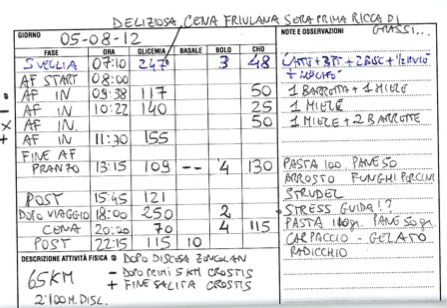 DELIZIOSA CENA FRIULANA SERA PRIMA RICCA DI GRASSI...
GIORNO 05-08-12 NOTE E OSSERVAZIONI
FASE ORA GLICEMIA BASALE BOLO CHO
SVEGLIA 07:10 247 3 48 LATTE + 3 FT + 2 BISC + 1/2
AF START 08:00 +
AF IN 09:38 117 50 1 BARRETTA + 1 MIELE
AF IN 10:22 140 25 1 MIELE
AF IN. 50 1 MIELE + 2 BARRETTE
AF IN 11:30 155
FINE AF
PRANZO 13:15 109 -- 4 130 PASTA 100, PANE 50
ARROSTO FUNGHI PORCINI
POST 15:45 121 STRUDEL
DOPO VIAGGIO 18:00 250 2 STRESS GUIDA!?
CENA 20:20 70 4 115 PASTA 100gr. PANE 50 gr
POST 22:15 115 10 CARPACCIO - GELATO
RADICCHIO
DESCRIZIONE ATTIVITÀ FISICA DOPO DISCESA ZONCOLAN
65KM - DOPO PRIMI 5 KM CROSTIS
+ FINE SALITA CROSTIS
2100 M. DISL.